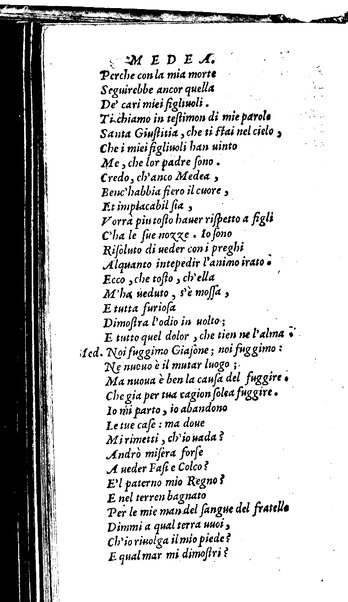 MEDEA.
Perche con la mia morte
Seguirebbe ancor quella
De' cari miei figliuoli.
Ti chiamo in testimon di mie parole
Santa Giustitia, che ti stai nel cielo,
Che i miei figliuoli han uinto
Me, che lor padre sono.
Credo, ch'anco Medea,
Benc'habbia fiero il cuore,
Et implacabil sia,
Vorrà piu tosto hauer rispetto a figli
C'ha le sue nozze. Io sono
Risoluto di ueder con i preghi
Alquanto intepedir l'animo irato.
Ecco, che tosto, ch'ella
M'ha ueduto, s'è mossa,
E tutta furiosa
Dimostra l'odio in uolto;
E tutto quel dolor, che tien ne l'alma.
Med. Noi fuggimo Giasone; noi fuggimo:
Ne nuouo è il mutar luogo;
Ma nuoua è ben la causa del fuggire.
Che gia per tua cagion solea fuggire.
Io mi parto, io abandono
Le tue case: ma doue
Mi rimetti, ch'io uada?
Andrò misera forse
A ueder Fasi e Colco?
E'l paterno mio Regno?
E nel terren bagnato
Per le mie man del sangue del fratello
Dimmi a qual terra uuoi,
Ch'io riuolga il mio piede?
E qual mar mi dimostri?